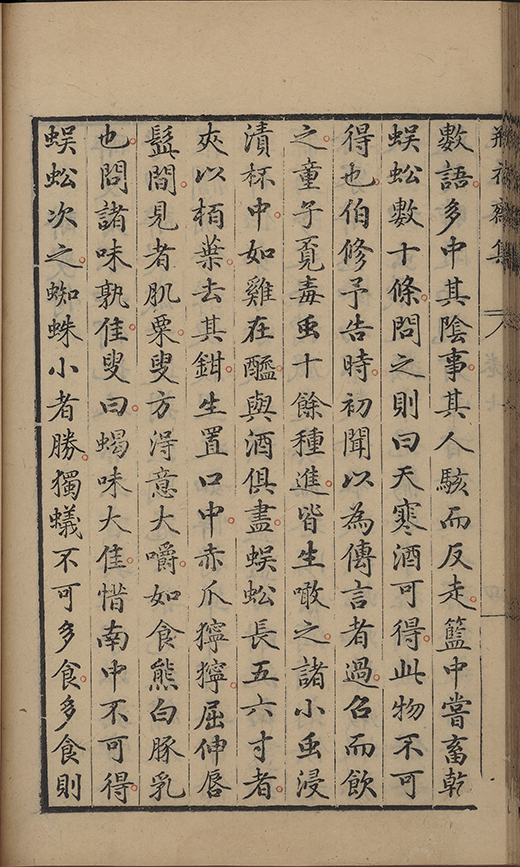 瓶花齋集
數語多中其陰事其人駭而反走籃中嘗畜乾
蜈蚣數十條問之則曰天寒酒可得此物不可
得也伯修予告時初聞以為傳言者過召而飲
之童子覓毒虫十餘種進皆生噉之諸小虫浸
漬杯中如雞在醯與酒俱盡蜈蚣長五六寸者
夾以栢葉去其鉗生置口中赤爪獰獰屈伸唇
髭間見者肌粟叟方得意大嚼如食熊白豚乳
也問諸味孰佳叟曰蝎味大佳惜南中不可得
蜈蚣次之蜘蛛小者勝獨蟻不可多食多食則